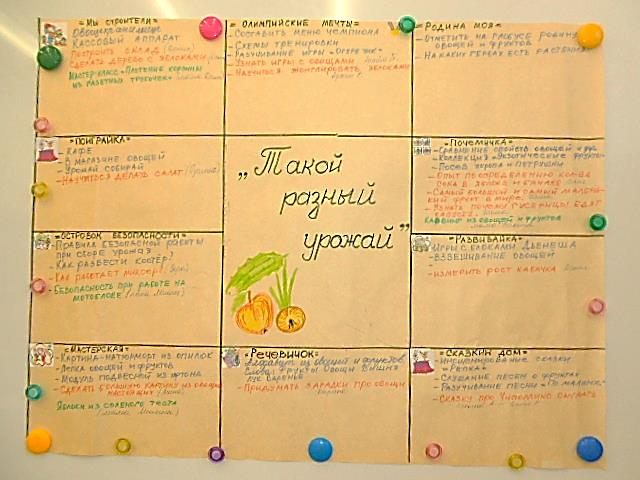 =Мы строители=
Овощехранилище
Кассовый аппарат
Построить склад
Сделать дерево с яблоками
Мастер-класс «Плетение корзины
из газетных трубочек»
= Олимпийские мечты=
- Составить меню чемпиона
- Схемы тренировки
- Разучивание игры «Огуречик»
- Узнать игры с овощами
- Научиться жонглировать яблоками
=Родина моя=
- Отметить на глобусе родину
овощей и фруктов
- На каких гербах есть растения
=Поиграйка=
- Кафе
- В магазине овощей
- Урожай собирай
- Научиться делать салат
„Такой
разный
урожай”
=Почемучка=
- Сравнение свойств овощей и фру
- Коллекция «Экзотические фрукты»
- Посев укропа и петрушки
- Опыт по определению кол-ва
сока в яблоке и банане
- Самый большой и самый маленьк
фрукт в мире
- Узнать почему гусеницы едят
капусту
из овощей и фруктов
=Островок безопасности=
- Правила безопасной работы
при сборе урожая
- Как развести костёр?
- Как работает миксер?
- Безопасность при работе на
мотоблоке
=Развивайка=
- Игры с блоками Дьенеша
- Взвешивание овощей
- Измерить рост кабачка
=Мастерская=
- Картина-натюрморт из опилок
- Лепка овощей и фруктов
- Модуль подвесной из картона
- Сделать большую картину из овощей
настоящих
Яблоки из соленого теста
=Речевичок=
из овощей и фруктов
Слова: фрукты овощи вишня
лук варенье
- Придумать загадки про овощи
=Сказкин дом=
- Инсценирование сказки
«Репка»
- Слушание песен о фруктах
- Разучивание песни «По малинку»
- Сказку про Чиполлино сыграть